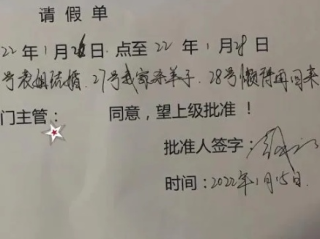 请假单
22年1月26日 点至22年1月28日
号表姐结婚，27号我家杀羊子，28号懒得再回来
门主管： 同意，望上级批准！
批准人签字：
时间：2022年1月15日.